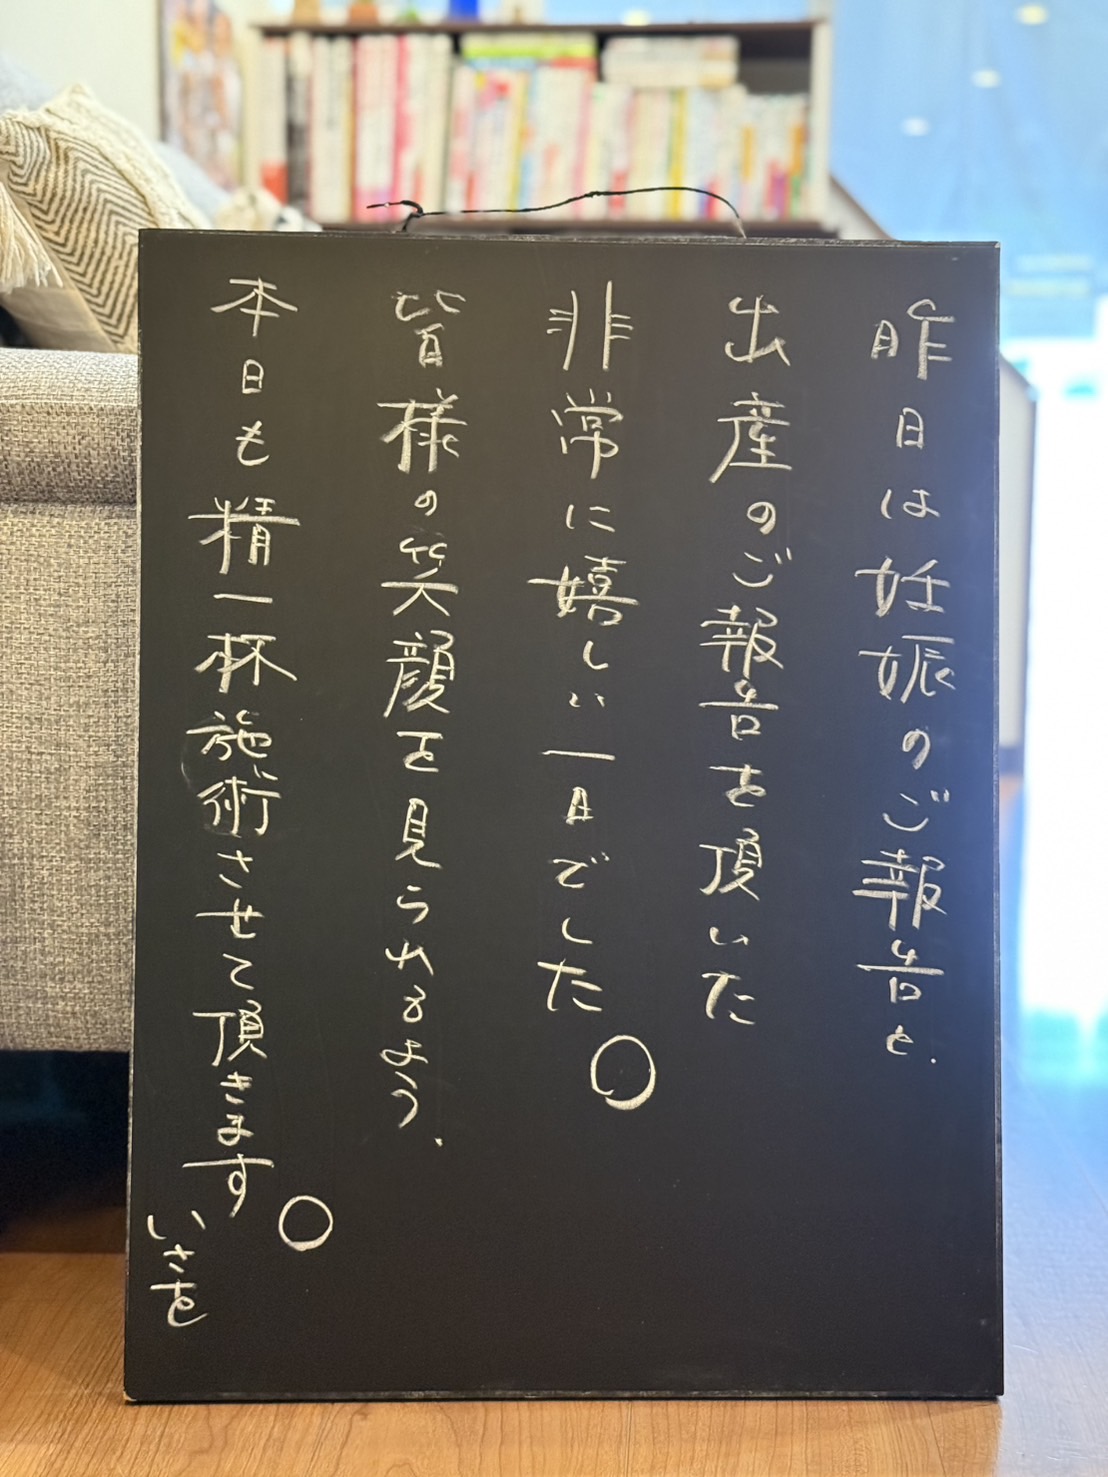 昨日は妊娠のご報告と、
出産のご報告を頂いた
非常に嬉しい一日でした。
皆様の笑顔を見られるよう、
本日も精一杯施術させて頂きます。
いさを